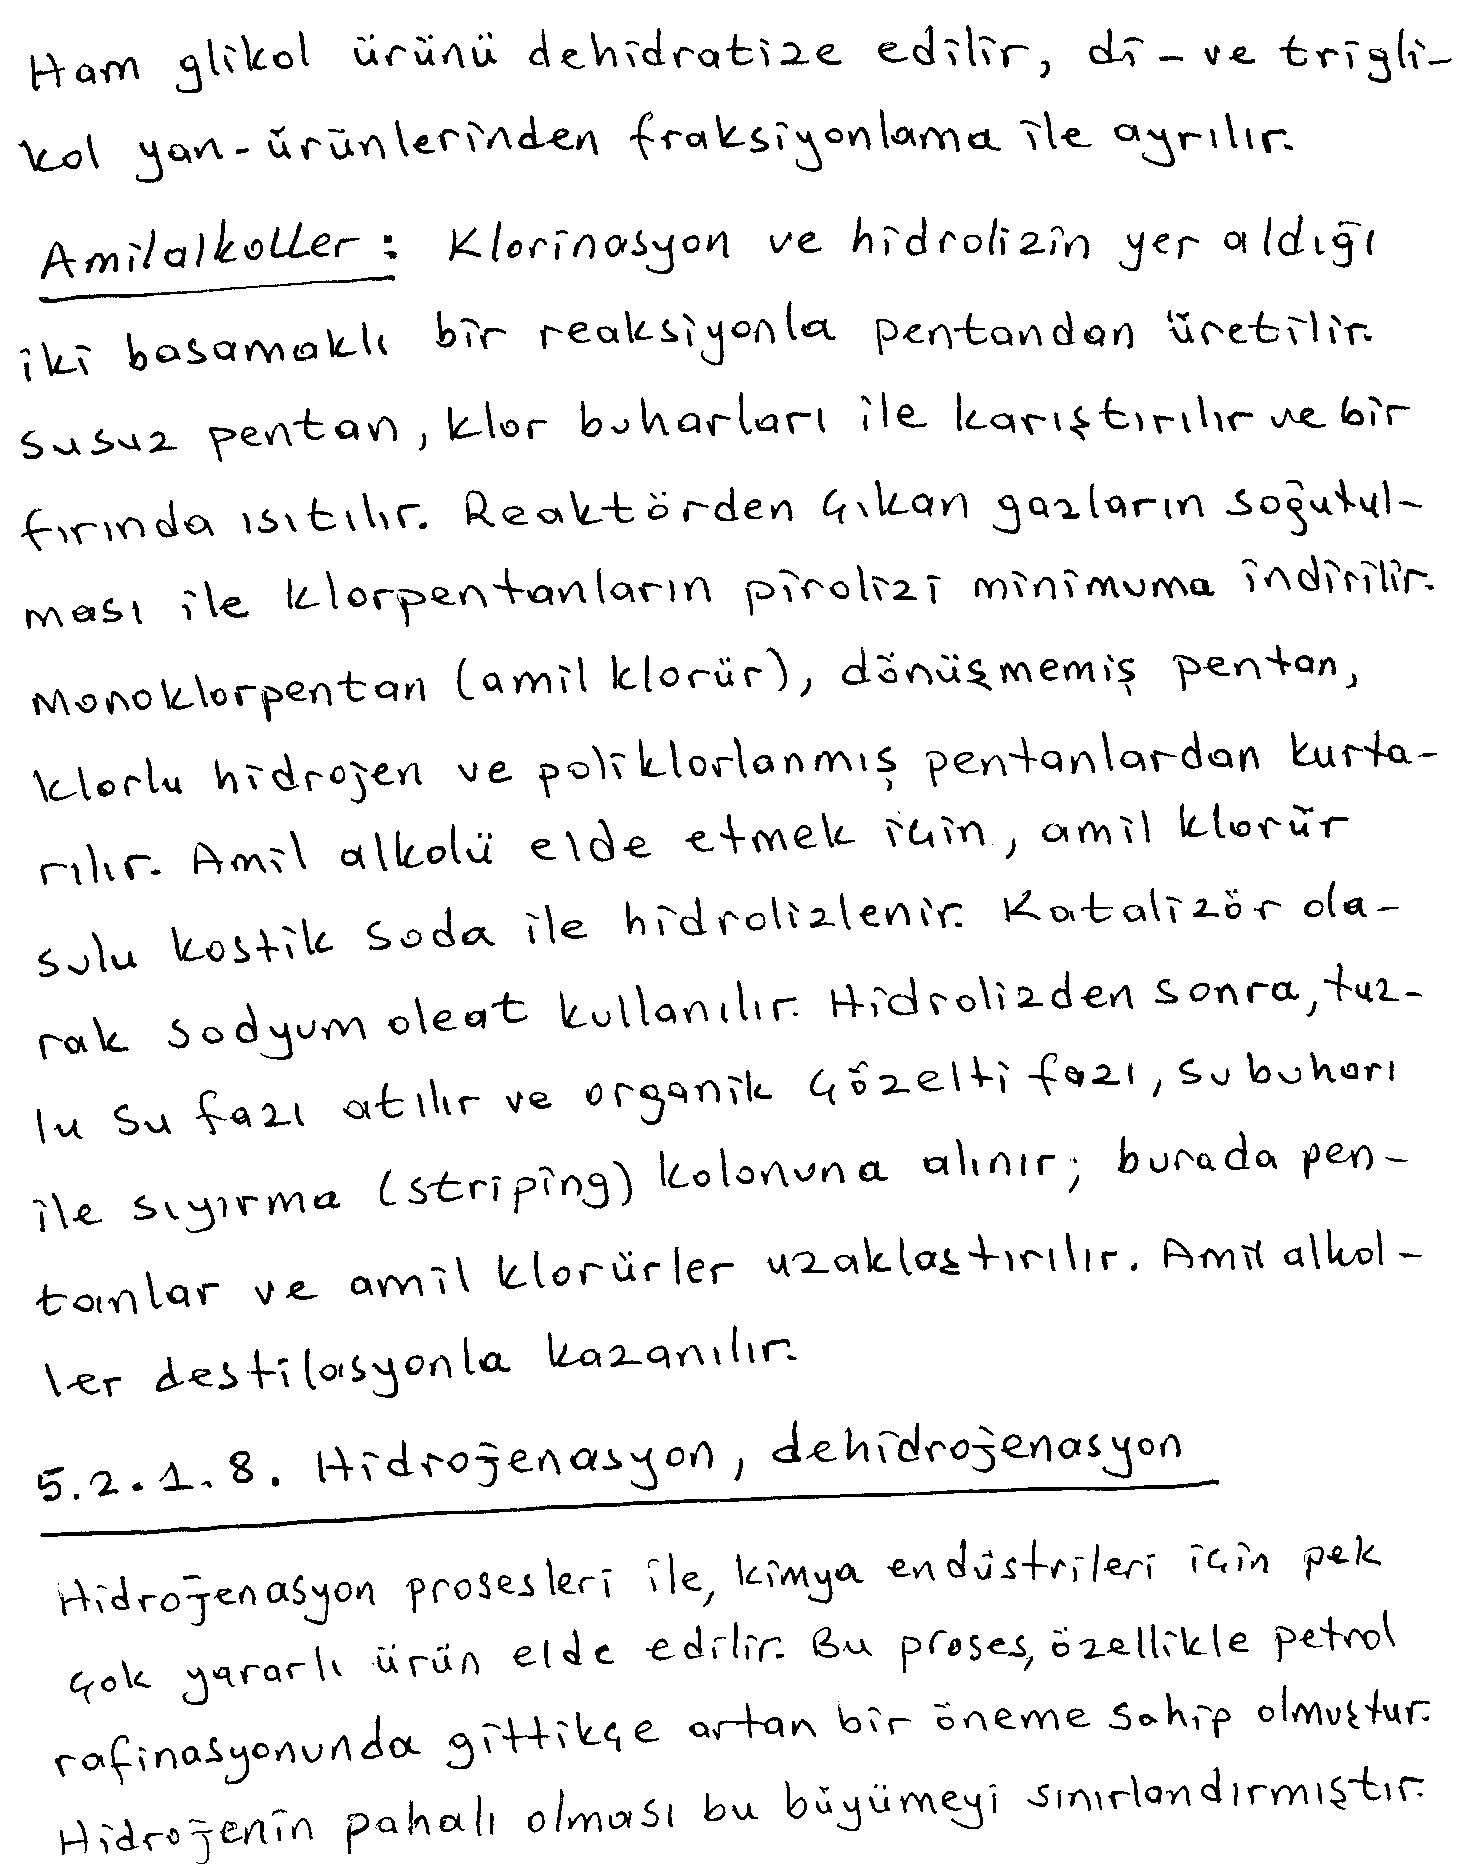 Ham glikol ürünü dehidratize edilir, di-ve trigli-
kol yan-ürünlerinden fraksiyonlama ile ayrılır.
Amilalkoller: Klorinasyon ve hidrolizin yer aldığı
iki basamaklı bir reaksiyonla pentandan üretilir.
Susuz pentan, klor buharları ile karıştırılır ve bir
fırında ısıtılır. Reaktörden çıkan gazların soğutul-
ması ile klorpentanların pirolizi minimuma indirilir.
Monoklorpentan (amil klorür), dönüşmemiş pentan,
klorlu hidrojen ve poliklorlanmış pentanlardan kurta-
rılır. Amil alkolü elde etmek için, amil klorür
sulu kostik soda ile hidrolizlenir. Katalizör ola-
rak sodyum oleat kullanılır. Hidrolizden sonra, tuz-
lu su fazı atılır ve organik çözelti fazı, su buharı
ile sıyırma (striping) kolonuna alınır; burada pen-
tanlar ve amil klorürler uzaklaştırılır. Amil alkol-
ler destilasyonla kazanılır.
5.2.1.8. Hidrojenasyon, dehidrojenasyon
Hidrojenasyon prosesleri ile, kimya endüstrileri için pek
çok yararlı ürün elde edilir. Bu proses, özellikle petrol
rafinasyonunda gittikçe artan bir öneme sahip olmuştur.
Hidrojenin pahalı olması bu büyümeyi sınırlandırmıştır.